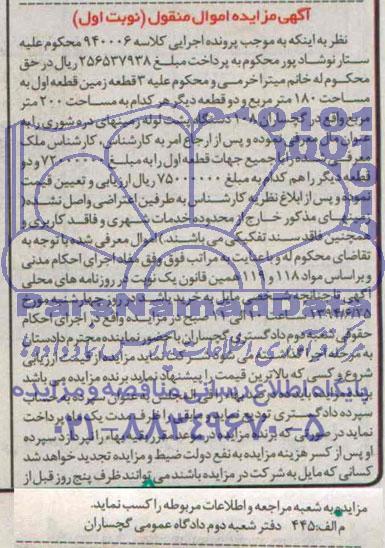 آگهی مزایده اموال منقول (نوبت اول)
نظر به اینکه به موجب پرونده اجرایی کلاسه ۹۴۰۰۰۶ محکوم علیه
ستار نوشاد پور محکوم به پرداخت مبلغ ۲۵۶۵۳۷۹۳۸ ریال در حق
محکوم له خانم میترا خرمی و محکوم علیه ۳ قطعه زمین قطعه اول به
مساحت ۱۸۰ متر مربع و دو قطعه دیگر هر کدام به مساحت ۲۰۰ متر
مربع واقع در گچساران ۱۰۸ دستگاه پشت لوله زمینهای دره شوری را به
عنوان مال معرفی نموده و پس از ارجاع امر به کارشناس، کارشناس ملک
معرفی شده را با جمیع جهات قطعه اول را به مبلغ و دو
قطعه دیگر را هم کدام به مبلغ ۷۵۰۰۰۰۰۰ ریال ارزیابی و تعیین قیمت
نموده و پس از ابلاغ نظریه کارشناس به طرفین اعتراضی واصل نشده (
زمینهای مذکور خارج از محدوده خدمات شهری و فاقد کاربری و
همچنین فاقد سند تفکیکی می باشند.) اموال معرفی شده با توجه به
تقاضای محکوم له و با عنایت به مراتب فوق وفق مفاد اجرای احکام مدنی
و بر اساس مواد ۱۱۸ و ۱۱۹ همین قانون یک نوبت در روزنامه های محلی
آگهی تا چنانچه شخصی مایل به خرید باشد در روز چهارشنبه مورخ
۱۳۹۴/۶/۲۵ ساعت ۱۰ الی ۱۱ صبح در مزایده واقع در اجرای احکام
حقوقی شعبه دوم دادگستری گچساران با حضور نماینده محترم دادستان
به مرحله اجرا گذاشته می شود شرکت نماید مزایده از قیمت ارزیابی
شروع و کسی که بالاترین قیمت را پیشنهاد نماید برنده مزایده می باشد
سپرده دادگستری تودیع نماید و مابقی را ظرف مدت یک ماه پرداخت
نماید در صورتی که برنده مزایده در موعد مقرر بقیه بهاء را نپردازد سپرده
او پس از کسر هزینه مزایده به نفع دولت ضبط و مزایده تجدید خواهد شد
کسانی که مایل به شرکت در مزایده باشند می توانند ظرف پنج روز قبل از
مزایده به شعبه مراجعه و اطلاعات مربوطه را کسب نماید.
م الف: ۴۴۵ دفتر شعبه دوم دادگاه عمومی گچساران
ParsNamadData
پایگاه اطلاع رسانی مناقصه و مزایده
۰۲۱-۸۸۳۴۹۶۷۰-۵